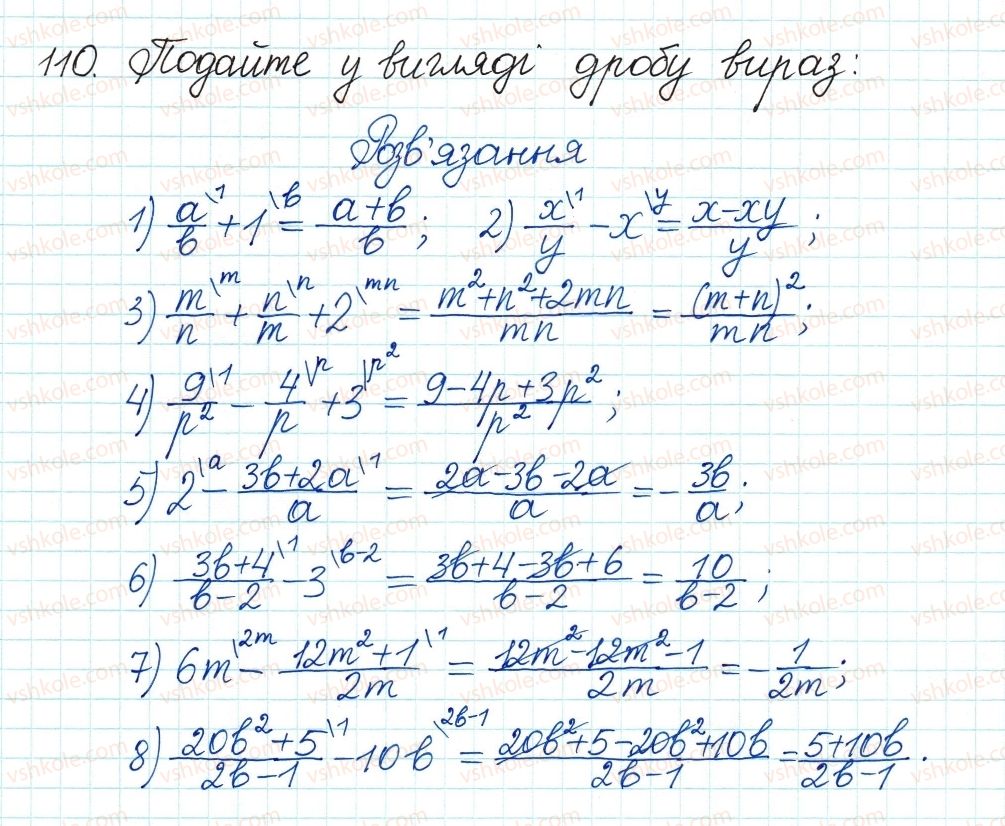 110. Подайте у вигляді дробу вираз:
Розв'язання
1) a\1/b + 1\b = (a+b)/b; 2) x\1/y − x\y = (x−xy)/y;
3) m\m/n + n\n/m + 2\mn = (m²+n²+2mn)/mn = (m+n)²/mn;
4) 9\1/p² − 4\p/p + 3\p² = (9−4p+3p²)/p²;
5) 2\a − (3b+2a)\1/a = (2a−3b−2a)/a = −3b/a;
6) (3b+4)\1/(b−2) − 3\b−2 = (3b+4−3b+6)/(b−2) = 10/(b−2);
7) 6m\2m − (12m²+1)\1/2m = (12m²−12m²−1)/2m = −1/2m;
8) (20b²+5)\1/(2b−1) − 10b\2b−1 = (20b²+5−20b²+10b)/(2b−1) = (5+10b)/(2b−1).
vshkole.com